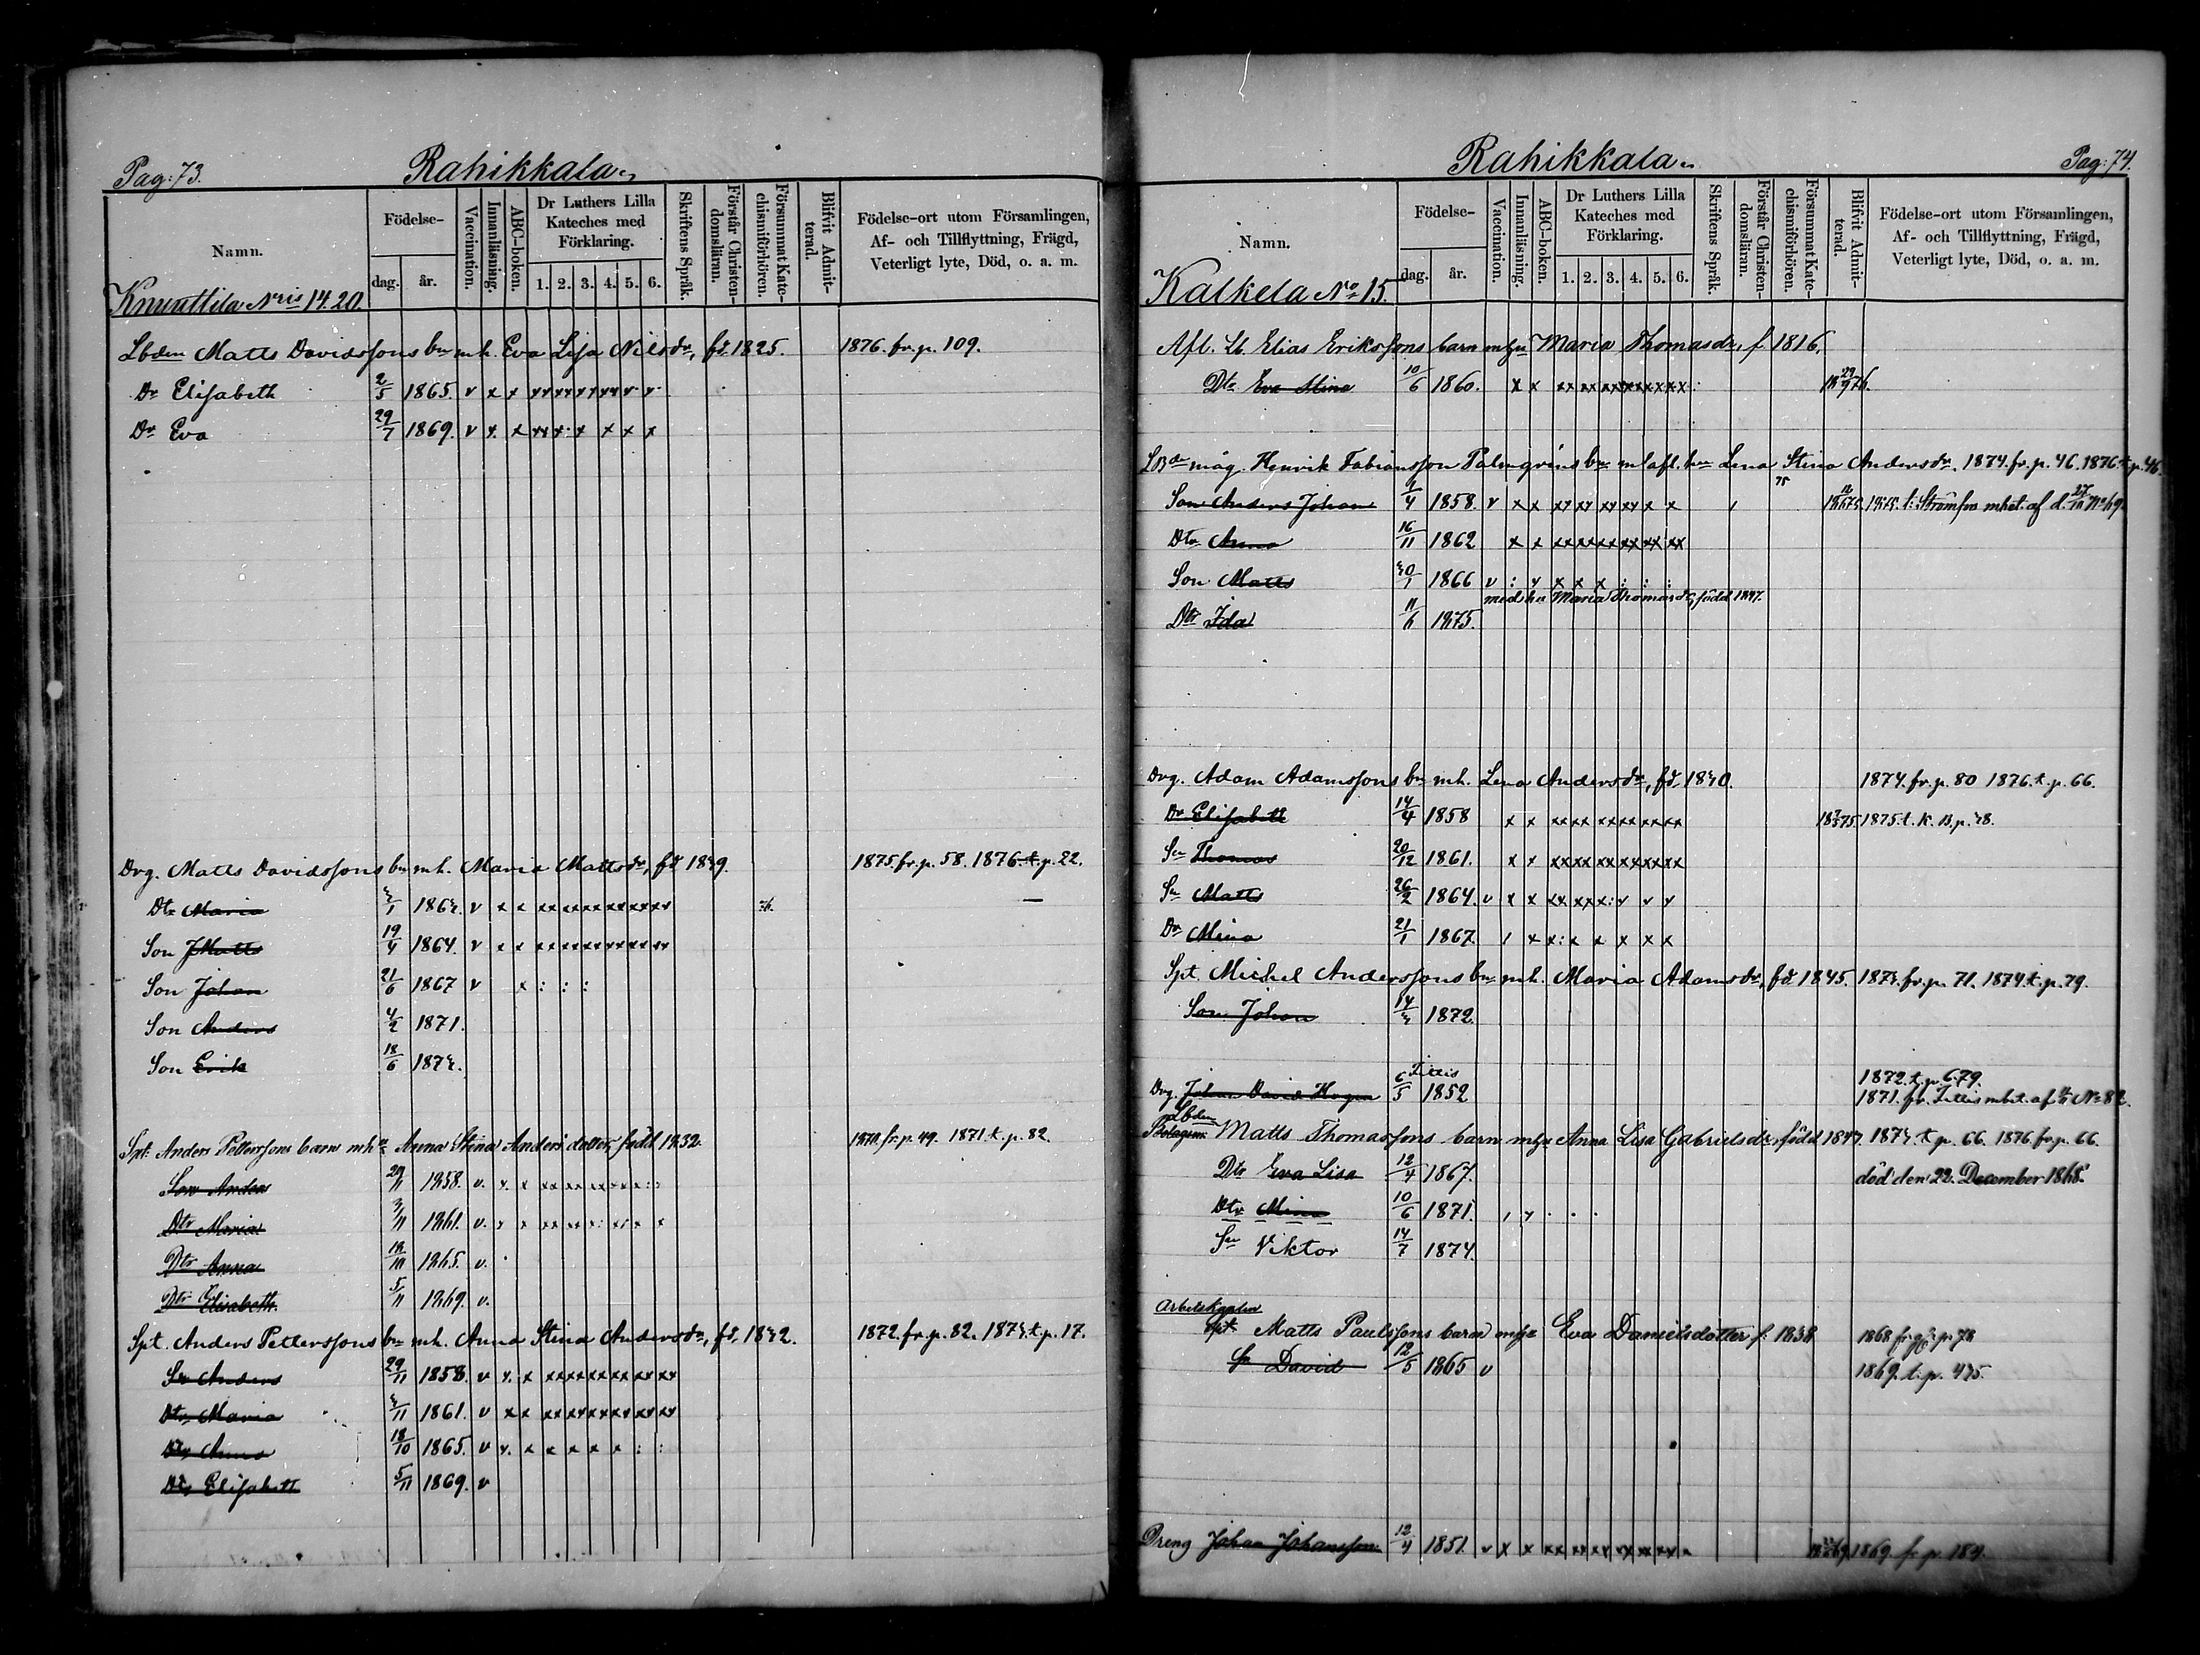 Pag: 73. Rahikkala
Namn. Födelse- dag. år. Vaccination. Innanläsning. ABC-boken. Dr Luthers Lilla Kateches med Förklaring. 1. 2. 3. 4. 5. 6. Skriftens Språk. Förstår Christendomsläran. Försummat Katechismiförhören. Blifvit Admitterad. Födelse-ort utom Församlingen, Af- och Tillflyttning, Frägd, Veterligt lyte, Död, o. a. m.
Knuuttila Nris 14. 20.
Lbden Matts Davidssons bn mh. Eva Lisa Nilsdr, fd. 1825. 1876. fr. p. 109.
Dr Elisabeth 2/5 1865. v x x
Dr Eva 29/7 1869. v x x
Drg. Matts Davidssons bn mh. Maria Mattsdr, fd 1839. 1875. fr. p. 58. 1876 t. p. 22.
Dtr Maria 3/1 1863. v x x
Son Matts 19/4 1864. v x x
Son Johan 21/6 1867 v x : : :
Son Anders 4/2 1871.
Son Erik 18/6 1873.
Spt. Anders Pettersons barn mhu Anna Stina Anders dotter, född 1832. 1870. fr. p. 49. 1871 t. p. 82.
Son Anders 29/11 1858. v. x. x
Dtr Maria 3/11 1861. v. x x
Dtr Anna 18/10 1865. v.
Dtr Elisabeth. 5/11 1869. v.
Spt. Anders Petterssons bn mh. Anna Stina Andersdr, fd. 1832. 1872. fr. p. 82. 1873. t. p. 17.
Sn Anders 29/11 1858. v x. x
Dtr Maria 3/11 1861. v x x
Dtr Anna 18/10 1865. v x. x x x x x : :
Dtr Elisabett 5/11 1869. v
Rahikkala Pag: 74.
Namn. Födelse- dag. år. Vaccination. Innanläsning. ABC-boken. Dr Luthers Lilla Kateches med Förklaring. 1. 2. 3. 4. 5. 6. Skriftens Språk. Förstår Christendomsläran. Försummat Katechismiförhören. Blifvit Admitterad. Födelse-ort utom Församlingen, Af- och Tillflyttning, Frägd, Veterligt lyte, Död, o. a. m.
Kalkela No 15.
Afl. Lb. Elias Erikssons barn mhu Maria Thomasdr, f. 1816.
Dtr Eva Stina 10/6 1860. x x
måg. Henrik Fabiansson Palmqvins bn m afl. hu Lena Stina Andersdr. 1874. fr. p. 46. 1876. t. p. 46.
Son Anders Johan 1858. v x x 1875. t.
Dtr Anna 16/11 1862 x x
Son Matts 30/1 1866 v : x x x x : : :
med hu Maria Thomasdr, född 1847.
Dtr Ida 11/6 1875.
Drg. Adam Adamssons bn mh. Lena Andersdr, fd. 1830. 1874. fr. p. 80 1876. t. p. 66.
Dr Elisabeth 14/4 1858 x x 1875. t. K. B. p. 38.
Sn Thomas 20/12 1861. x x
Sn Matts 26/2 1864. v x x
Dr Mina 21/1 1867. x x : x x x x x
Spt. Michel Anderssons bn mh. Maria Adamsdr, fd. 1845. 1873. fr. p. 71. 1874. t. p. 79.
Son Johan 14/3 1872.
Tittis 1872. t. p. 679.
Drg. Johan David Hagen 6/5 1852 1871. fr. Tittis mbet. af No 82.
Lbden
Bolagsm. Matts Thomassons barn mhu Anna Lisa Gabrielsdr, född 1847. 1873 t. p. 66. 1876 fr. p. 66.
Dtr Eva Lisa 12/4 1867. död den 22. December 1868.
Dtr Mina 10/6 1871.
Sn Viktor 14/7 1874.
Arbetskarlen
Spt Matts Paulssons barn mhu Eva Danielsdotter f. 1838 1868 fr. p. 78
Sn David 12/5 1865 v 1869. t. p. 475.
Dreng Johan Johansson 12/4 1851. v x x 1869. fr. p. 184.